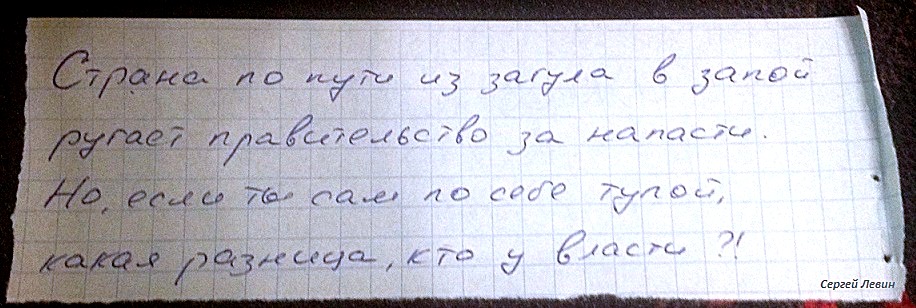 Страна по пути из загула в запой
ругает правительство за напасти.
Но, если ты сам по себе тупой,
какая разница, кто у власти?!
Сергей Левин